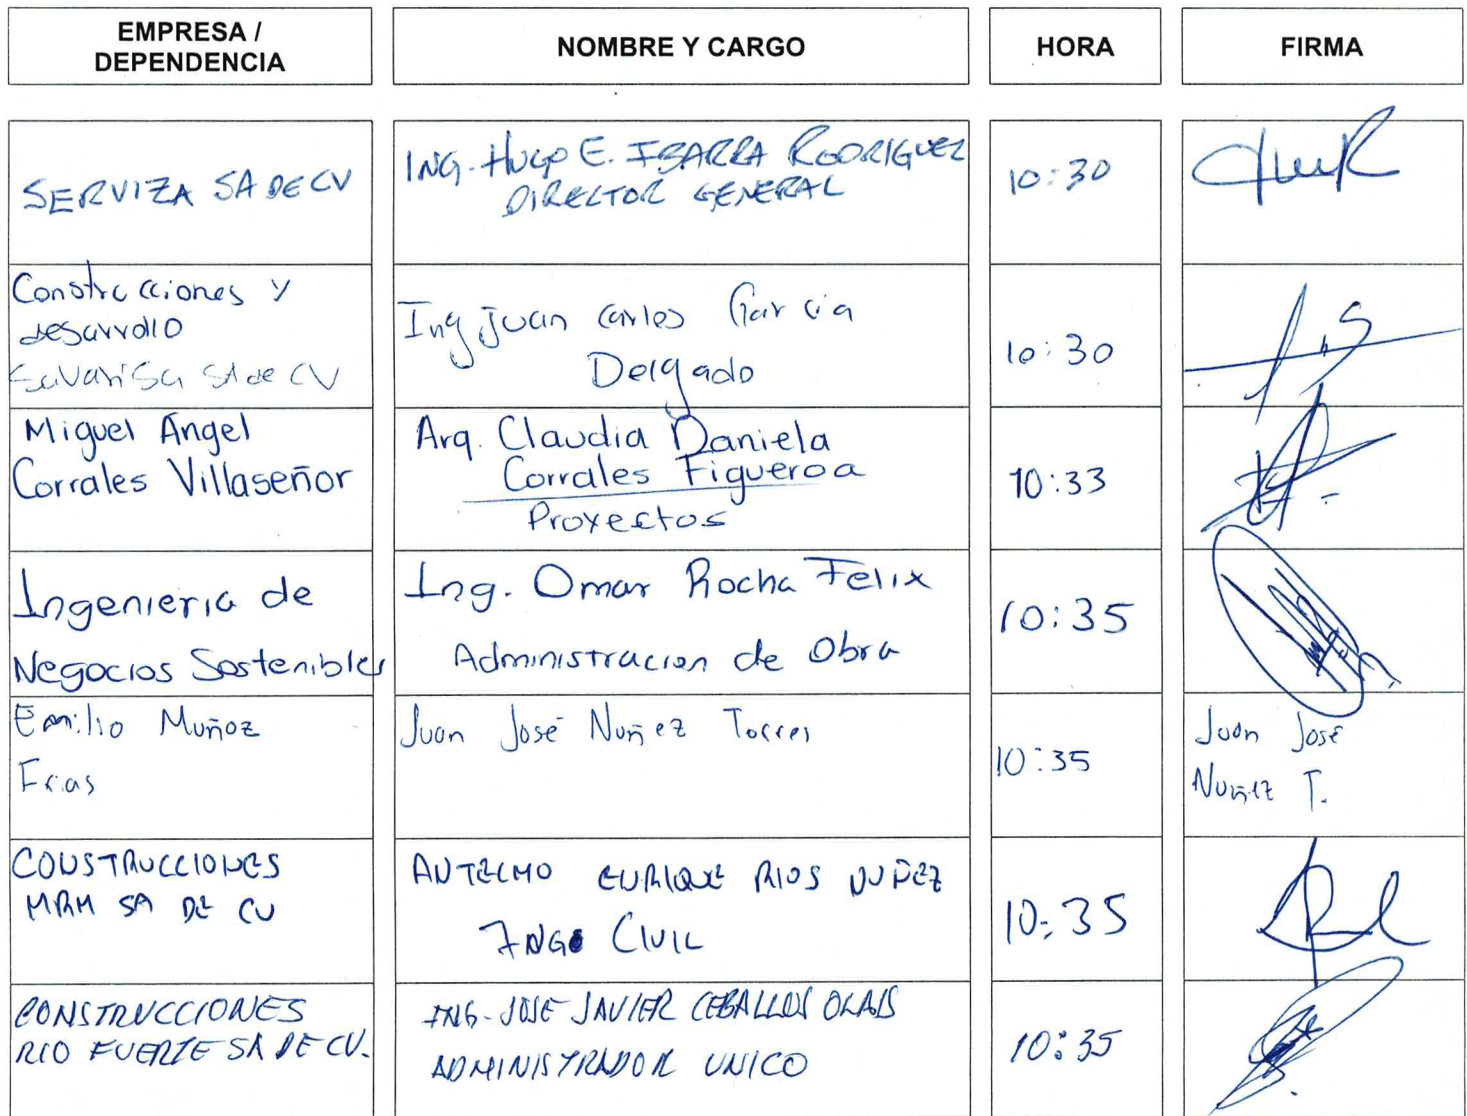 EMPRESA /
DEPENDENCIA
NOMBRE Y CARGO
HORA
FIRMA
SERVIZA SA DE CV
ING. HUGO E. IBARRA RODRIGUEZ
DIRECTOR GENERAL
10:30
Construcciones y
desarrollo
SavariSa SA de CV
Ing Juan Carlos Garcia
Delgado
10:30
Miguel Ángel
Corrales Villaseñor
Arq. Claudia Daniela
Corrales Figueroa
Proyectos
10:33
Ingenieria de
Negocios Sostenibles
Ing. Omar Rocha Felix
Administracion de Obra
10:35
Emilio Muñoz
Frias
Juan José Nuñez Torres
10:35
Juan José
Nuñez T.
CONSTRUCCIONES
MRM SA DE CV
ANTELMO ENRIQUE RIOS NUÑEZ
ING CIVIL
10:35
CONSTRUCCIONES
RIO FUERTE SA DE CV.
ING. JOSE JAVIER CEBALLOS OLAIS
ADMINISTRADOR UNICO
10:35